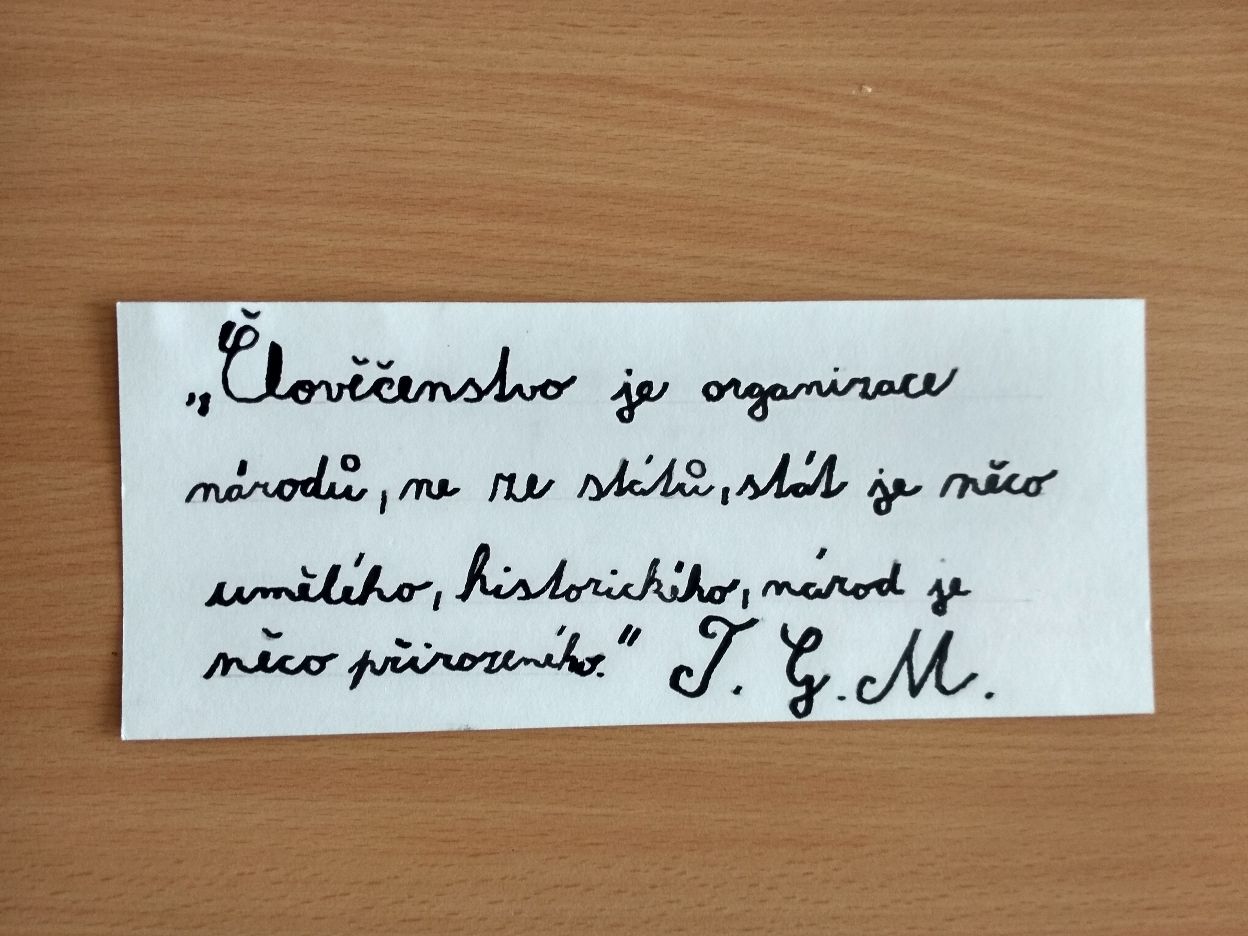 „Člověčenstvo je organizace
národů, ne ze států, stát je něco
umělého, historického, národ je
něco přirozeného." T. G. M.